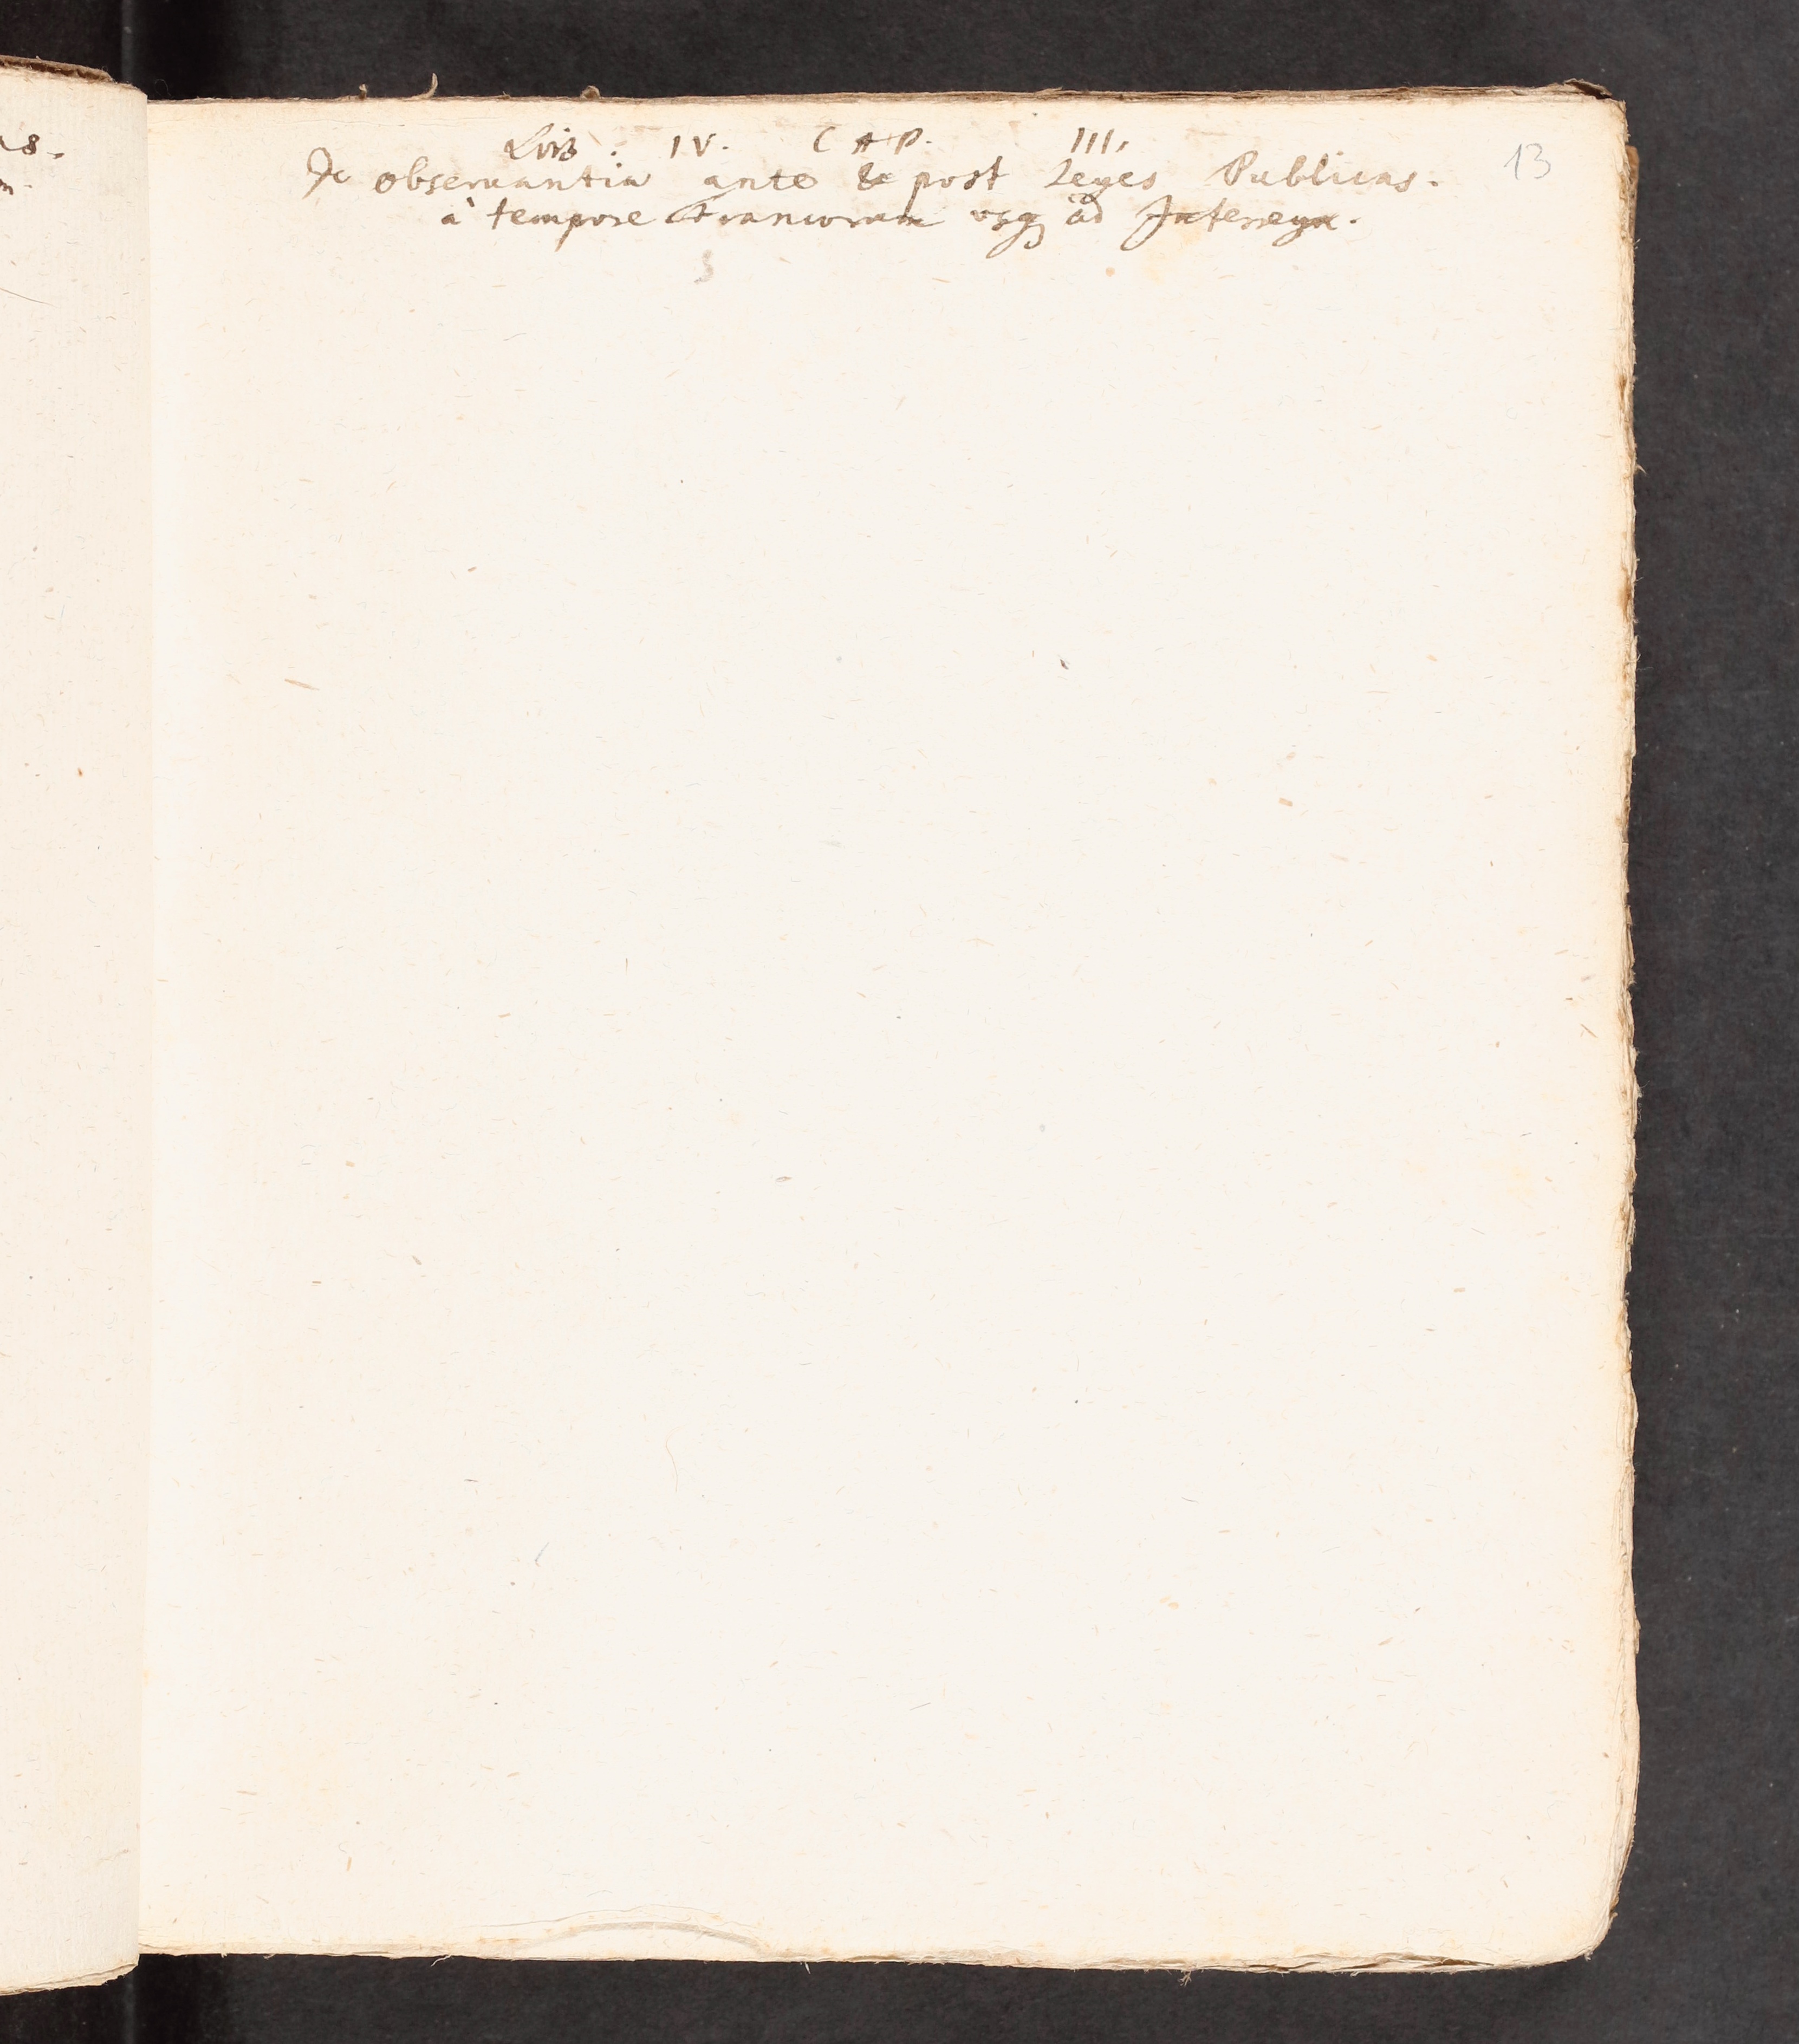 Lib. IV. CAP. III.
De obseruantia ante & post Leges Publicas.
à tempore Francorum vsq ad Interregn.
13